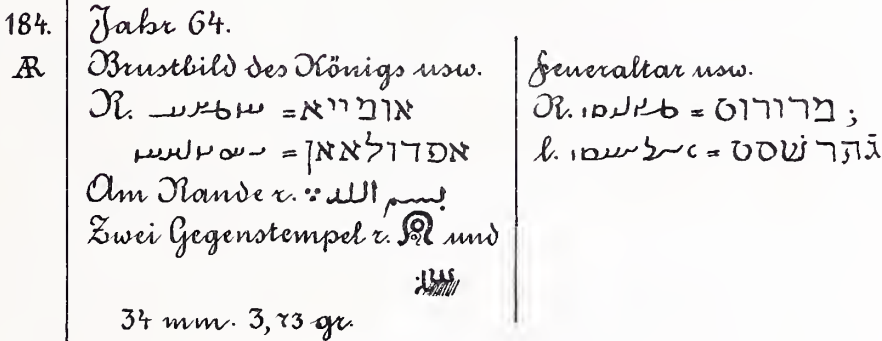 184. Jahr 64.
AR Brustbild des Königs usw.
R. = אומייא
= אפדולאאן
Am Rande r. بسم الله
Zwei Gegenstempel r. und
34 mm. 3,73 gr.
Feueraltar usw.
R. = מרורוט ;
l. = גתר שסט